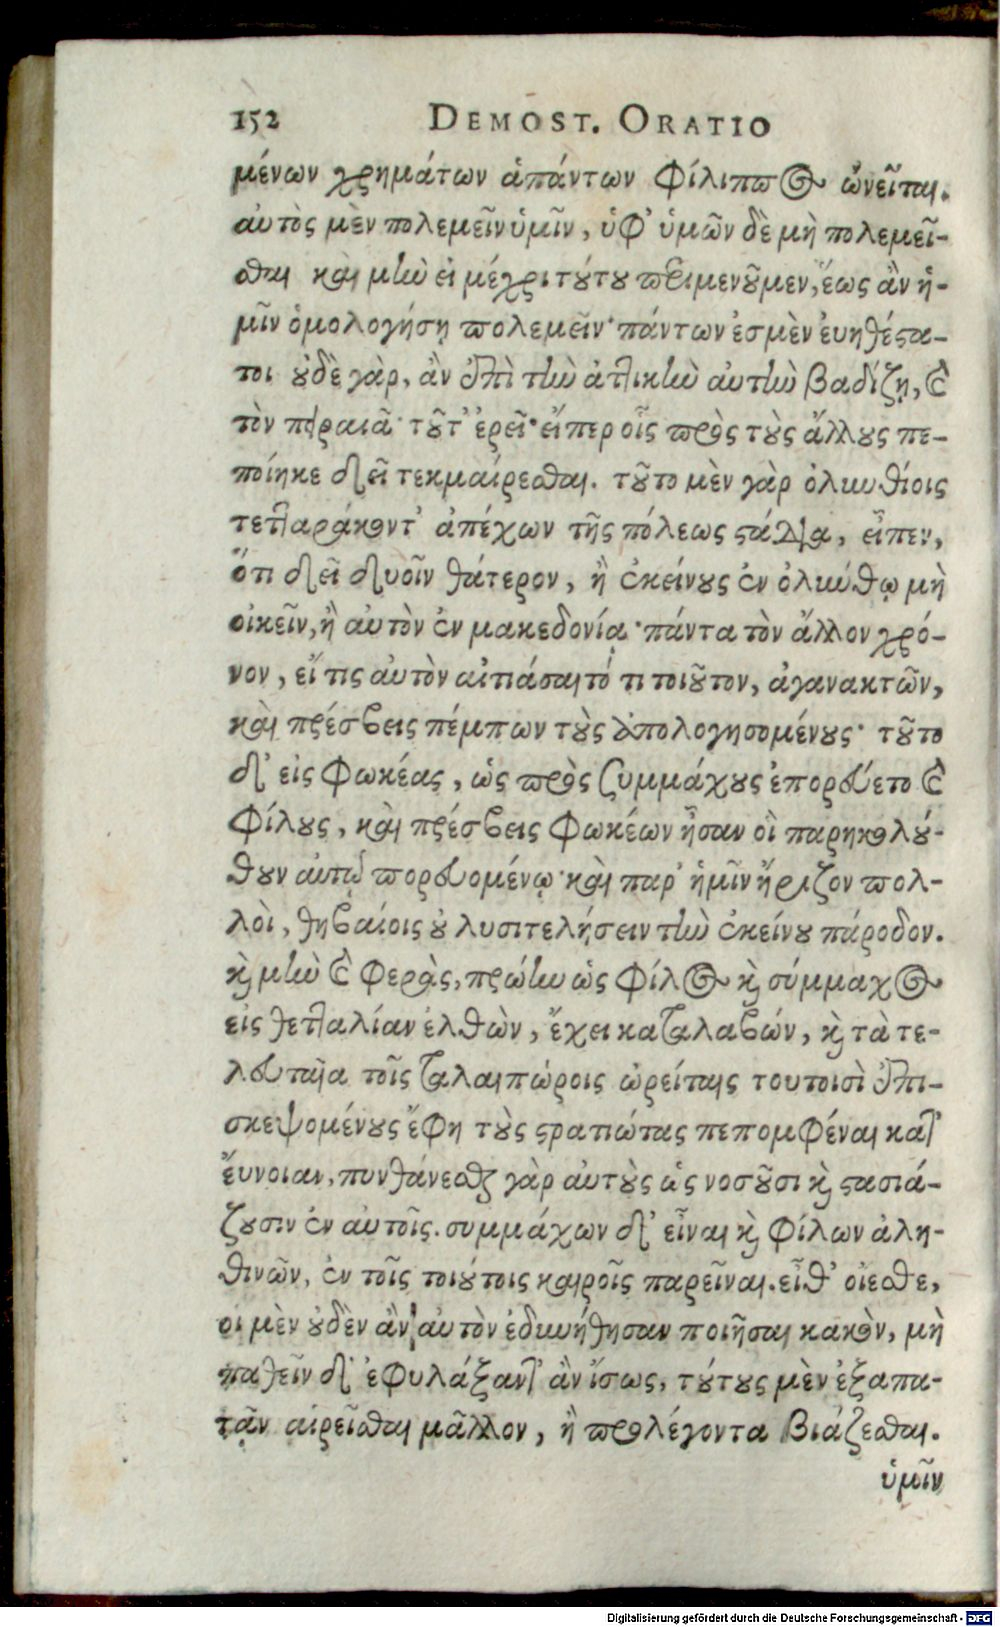 152 DEMOST. ORATIO
μένων χρημάτων ἁπάντων Φίλιππος ὠνεῖται.
αὐτὸς μὲν πολεμεῖν ὑμῖν, ὑφ' ὑμῶν δὲ μὴ πολεμεῖ-
σθαι καὶ μὴν εἰ μέχρι τούτου περιμενοῦμεν, ἕως ἂν ἡ-
μῖν ὁμολογήσῃ πολεμεῖν· πάντων ἐσμὲν ἐυηθέστα-
τοι οὐδὲ γὰρ, ἂν ἐπὶ τὴν ἀττικὴν αὐτὴν βαδίζῃ, καὶ
τὸν πειραιᾶ· τοῦτ' ἐρεῖ· εἴπερ οἷς πρὸς τοὺς ἄλλους πε-
ποίηκε δεῖ τεκμαίρεσθαι. τοῦτο μὲν γὰρ ὀλυνθίοις
τετταράκοντ' ἀπέχων τῆς πόλεως στάδια, εἶπεν,
ὅτι δεῖ δυοῖν θάτερον, ἢ ἐκείνους ἐν ὀλύνθῳ μὴ
οἰκεῖν, ἢ αὐτὸν ἐν μακεδονίᾳ· πάντα τὸν ἄλλον χρό-
νον, εἴ τις αὐτὸν αἰτιάσαιτό τι τοιοῦτον, ἀγανακτῶν,
καὶ πρέσβεις πέμπων τοὺς ἀπολογησομένους· τοῦτο
δ' εἰς Φωκέας, ὡς πρὸς συμμάχους ἐπορεύετο καὶ
Φίλους, καὶ πρέσβεις Φωκέων ἦσαν οἳ παρηκολού-
θουν αὐτῷ πορευομένῳ· καὶ παρ' ἡμῖν ἤριζον πολ-
λοὶ, θηβαίοις οὐ λυσιτελήσειν τὴν ἐκείνου πάροδον.
καὶ μὴν καὶ Φερὰς, πρώην ὡς Φίλος καὶ σύμμαχος
εἰς θετταλίαν ἐλθὼν, ἔχει καταλαβών, καὶ τὰ τε-
λευταῖα τοῖς ταλαιπώροις ὠρείταις τουτοισὶ ἐπι-
σκεψομένους ἔφη τοὺς στρατιώτας πεπομφέναι κατ'
ἔυνοιαν, πυνθάνεσθαι γὰρ αὐτοὺς ὡς νοσοῦσι καὶ στασιά-
ζουσιν ἐν αὐτοῖς. συμμάχων δ' εἶναι καὶ Φίλων ἀλη-
θινῶν, ἐν τοῖς τοιούτοις καιροῖς παρεῖναι. εἶθ' οἴεσθε,
οἳ μὲν οὐδὲν ἂν αὐτὸν ἐδυνήθησαν ποιῆσαι κακὸν, μὴ
παθεῖν δ' ἐφυλάξαντ' ἂν ἴσως, τούτους μὲν ἐξαπα-
τᾷν αἱρεῖσθαι μᾶλλον, ἢ προλέγοντα βιάζεσθαι.
ὑμῖν
Digitalisierung gefördert durch die Deutsche Forschungsgemeinschaft - DFG